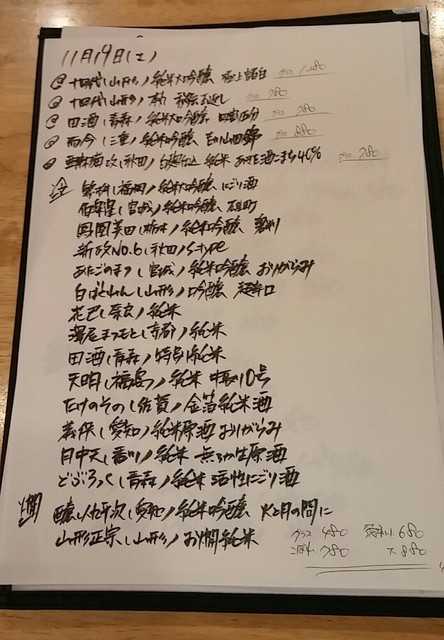 11月19日(土)
十四代(山形)純米大吟醸 極上諸白 1,280
十四代(山形) 本丸 秘伝玉返し 780
田酒(青森)純米大吟醸 四割五分 780
而今(三重)純米吟醸 山田錦 880
新政(秋田) 純米 あきた酒こまち40% 780
冷 繁桝(福岡)純米大吟醸 にごり酒
伯楽星(宮城)純米吟醸 雄町
鳳凰美田(栃木)純米吟醸
新政NO.6(秋田)S-type
あたごのまつ(宮城)純米吟醸 おりがらみ
白ばくれん(山形)吟醸 超辛口
花巴(奈良)純米
澤屋まつもと(京都)純米
田酒(青森)特別純米
天明(福島)純米 中取り10号
たけのその(佐賀)金箔純米酒
義侠(愛知)純米原酒 おりがらみ
日中天(香川)純米 無ろか生原酒
どぶろっく(青森)純米 活性にごり酒
燗 醸し人九平次(愛知)純米吟醸 火と月の間に
山形正宗(山形)お燗純米
グラス 480 680
780 880